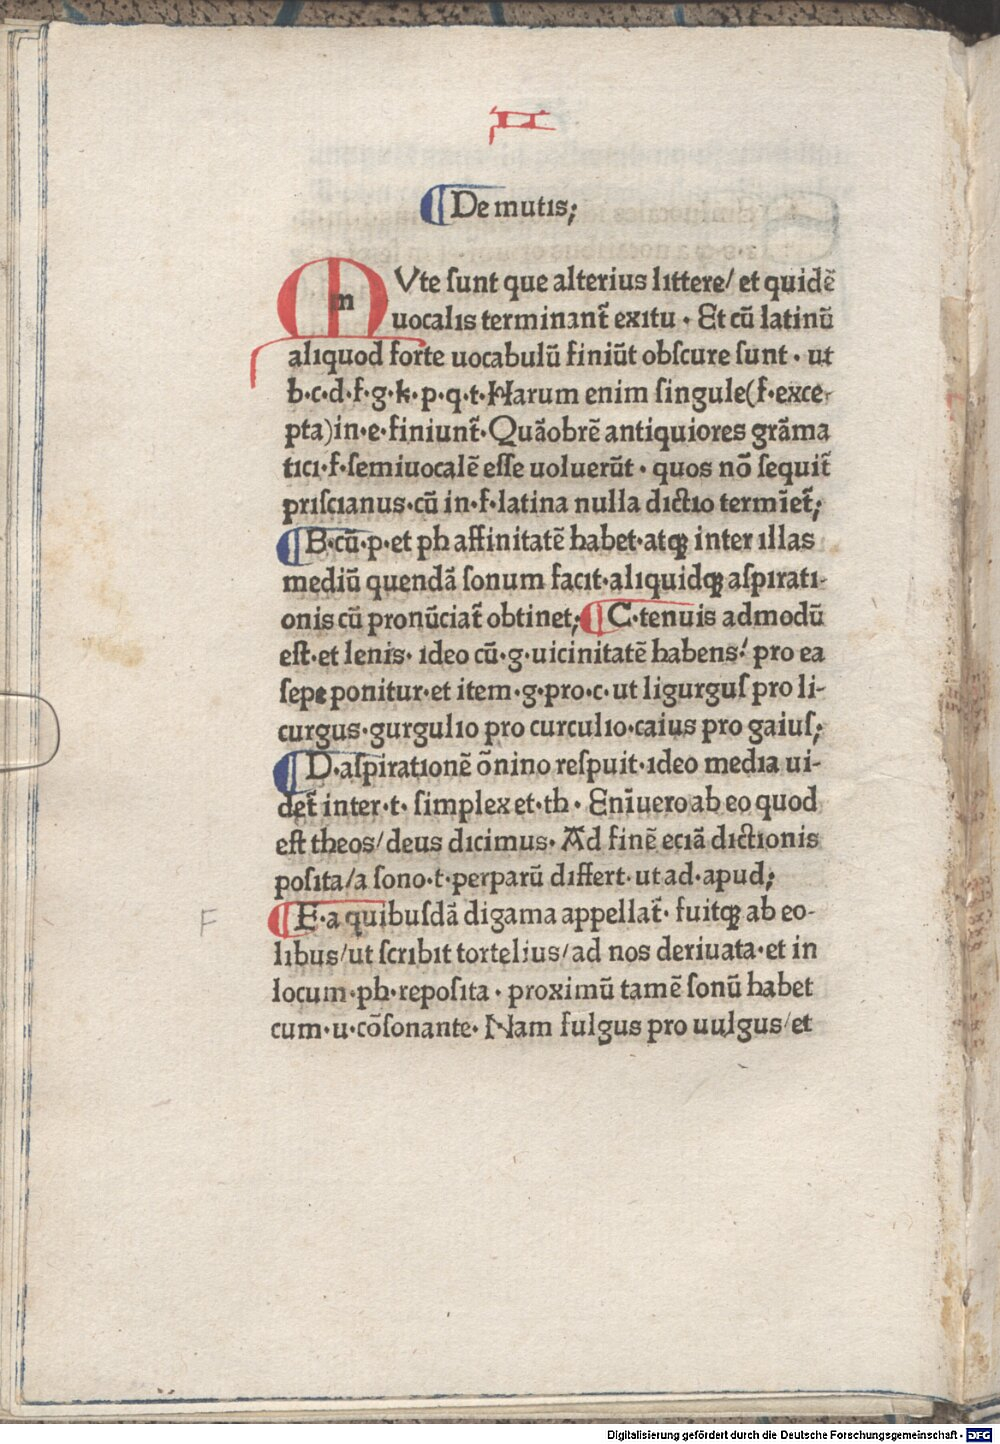 II
¶ De mutis;
MUte ſunt que alterius littere/ et quidē
uocalis terminant̃ exitu · Et cū latinū
aliquod forte uocabulū finiūt obſcure ſunt · ut
b·c·d·f·g·k·p·q·t·Harum enim ſingule(f·exce-
pta)in·e·finiunt̃·Quāobrē antiquiores grāma
tici·f·ſemiuocalē eſſe uoluerūt · quos nō ſequit̃
priſcianus·cū in·f·latina nulla dictio termīet̃;
¶ B·cū·p·et ph affinitatē habet·atqꝫ inter illas
mediū quendā ſonum facit·aliquidqꝫ aſpirati-
onis cū pronūciat̃ obtinet; ¶ C·tenuis admodū
eſt·et lenis· ideo cū·g·uicinitatē habens: pro ea
ſepe ponitur·et item·g·pro·c·ut ligurguſ pro li-
curgus·gurgulio pro curculio·caius pro gaiuſ;
¶ D·aſpirationē ōnino reſpuit·ideo media ui-
det̃ inter·t· ſimplex et·th· Enīuero ab eo quod
eſt theos/deus dicimus· Ad finē eciā dictionis
poſita/a ſono·t·perparū differt·ut ad·apud;
F ¶ F·a quibuſdā digama appellat̃· fuitqꝫ ab eo-
libus/ut ſcribit tortelius/ad nos deriuata·et in
locum·ph·repoſita · proximū tamē ſonū habet
cum·u·cōſonante· Nam fulgus pro uulgus/et
Digitalisierung gefördert durch die Deutsche Forschungsgemeinschaft - DFG